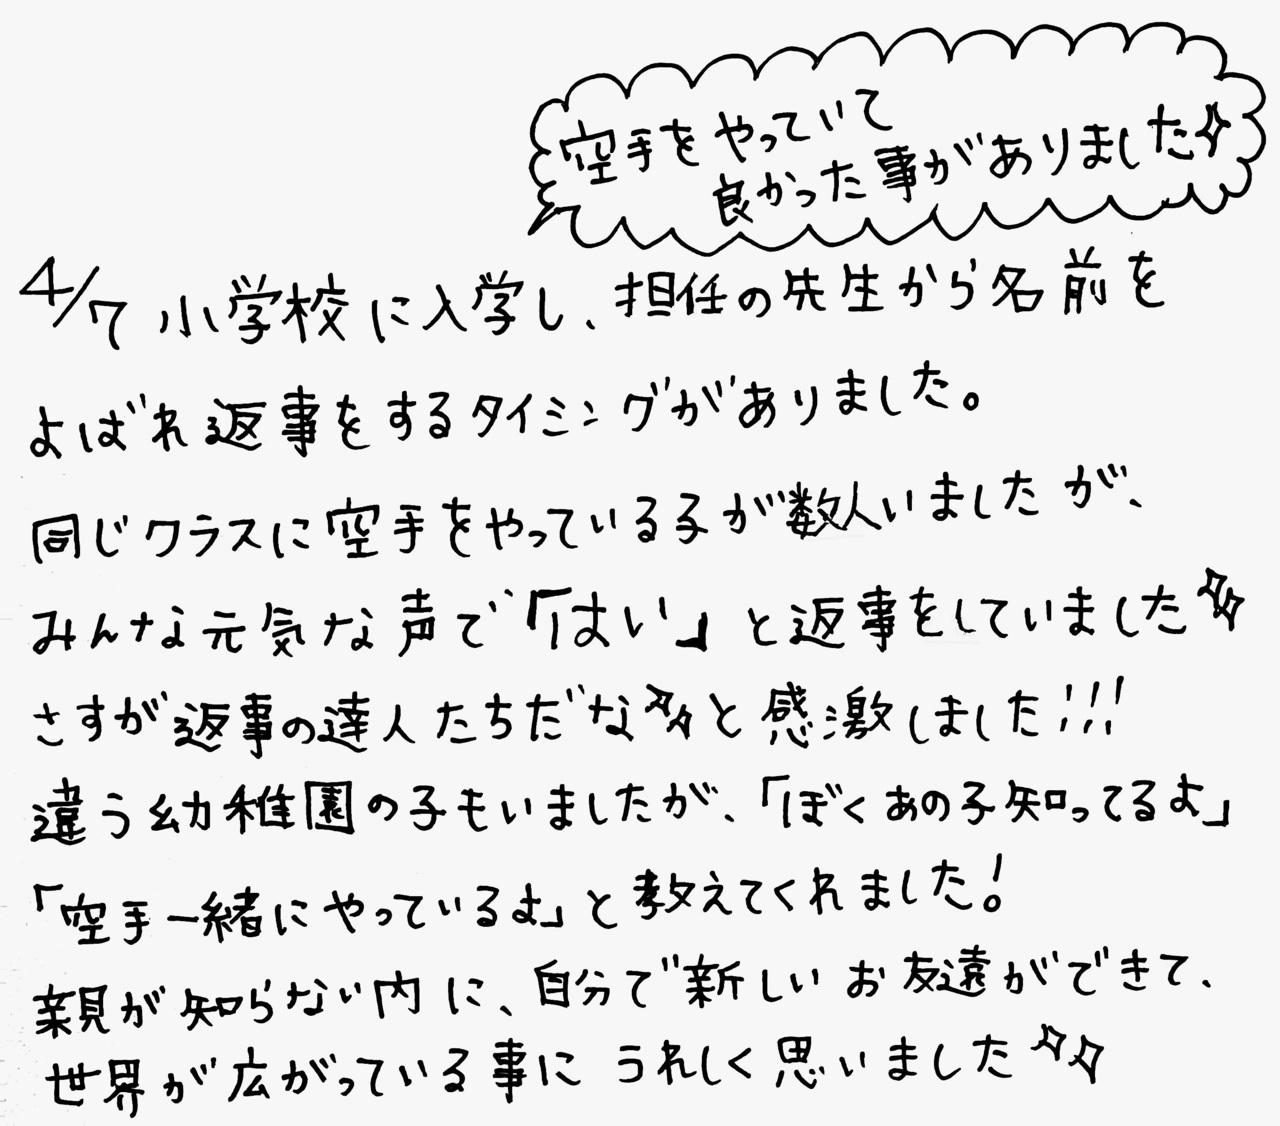 空手をやっていて
良かった事がありました✨
4/7 小学校に入学し、担任の先生から名前を
よばれ返事をするタイミングがありました。
同じクラスに空手をやっている子が数人いましたが、
みんな元気な声で「はい」と返事をしていました✨
さすが返事の達人たちだな✨と感激しました!!!
違う幼稚園の子もいましたが、「ぼくあの子知ってるよ」
「空手一緒にやっているよ」と教えてくれました!
親が知らない内に、自分で新しいお友達ができて、
世界が広がっている事にうれしく思いました✨